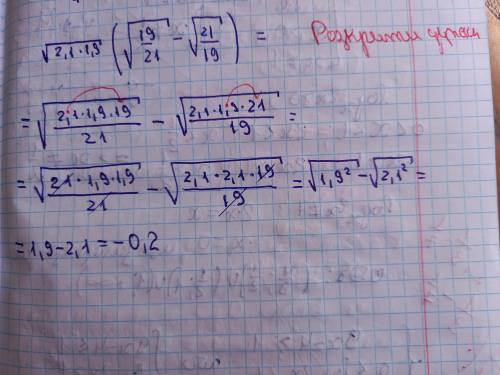 √2,1·1,9 (√19/21 − √21/19) = Розкрити дужки
= √2,1·1,9·19/21 − √2,1·1,9·21/19 =
= √21·1,9·1,9/21 − √2,1·2,1·19/19 = √1,9² − √2,1² =
= 1,9 − 2,1 = −0,2